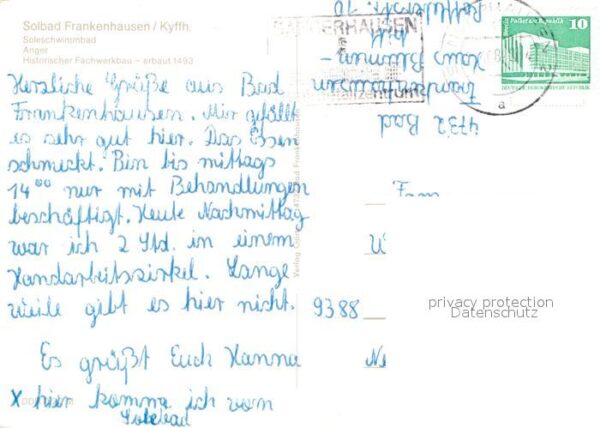 Solbad Frankenhausen / Kyffh.
Soleschwimmbad
Anger
Historischer Fachwerkbau – erbaut 1493
Herzliche Grüße aus Bad
Frankenhausen. Mir gefällt
es sehr gut hier. Das Essen
schmeckt. Bin bis mittags
14°° nur mit Behandlungen
beschäftigt. Heute Nachmittag
war ich 2 Std. in einem
Handarbeitszirkel. Lange
weile gibt es hier nicht.
Es grüßt Euch Hanna
X hier komme ich vom
Solebad
4732 Bad
Frankenhausen
Haus Blumen-
Verlag
SANGERHAUSEN
10
a
Fam
9388
privacy protection
Datenschutz